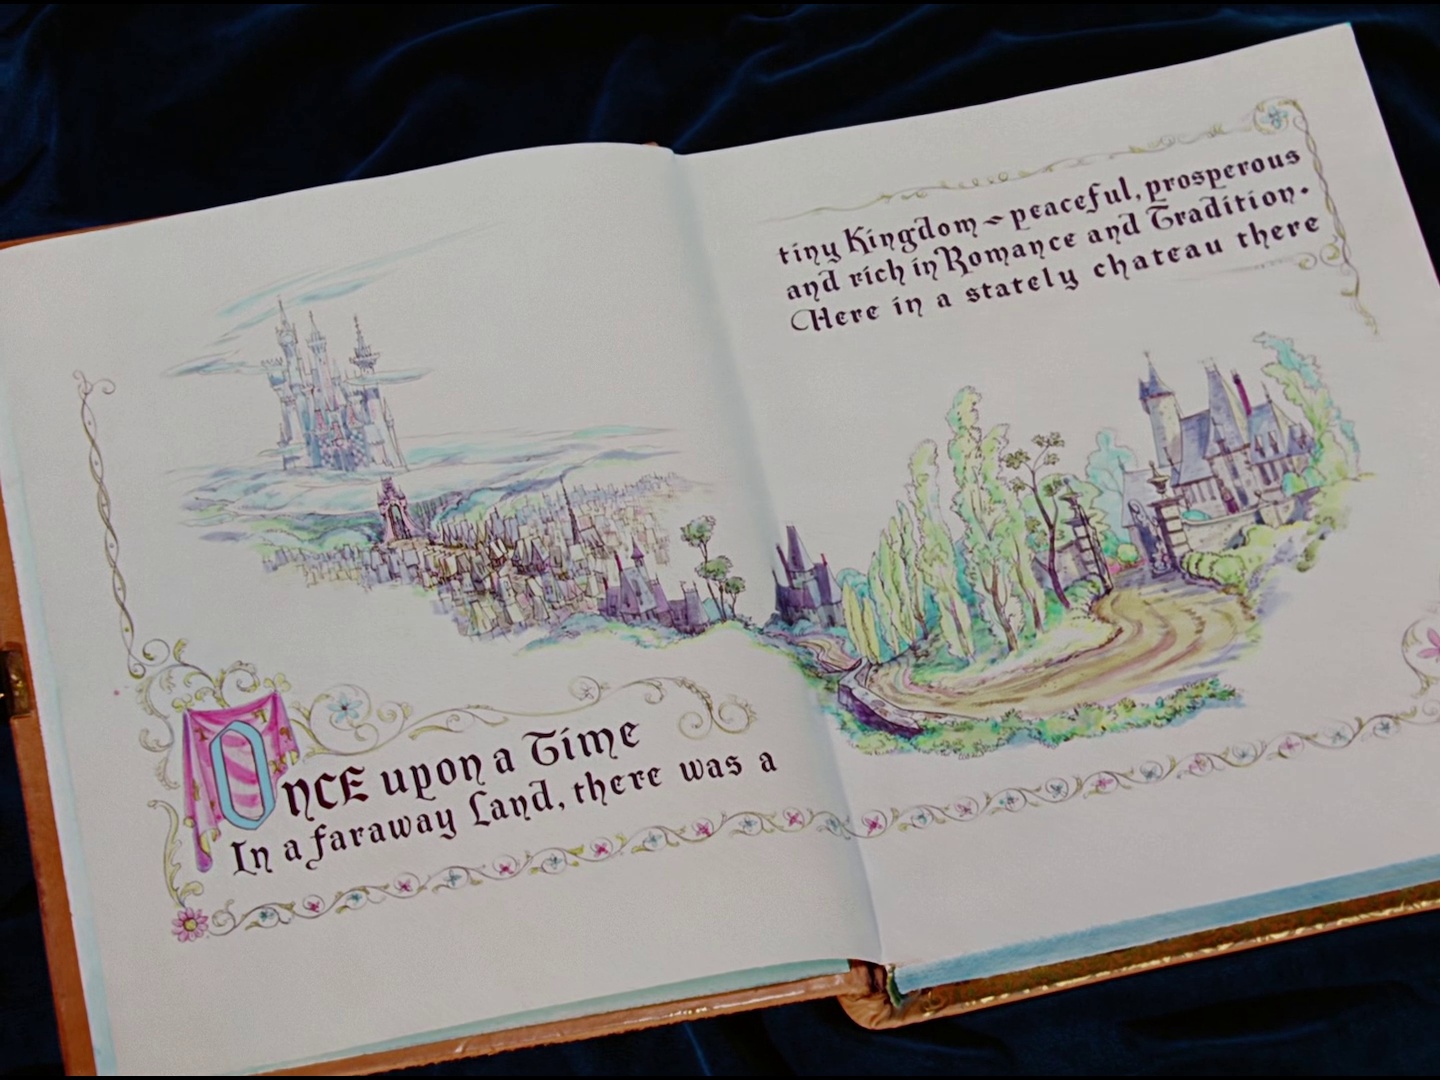 Once upon a Time
In a faraway Land, there was a
tiny Kingdom ~ peaceful, prosperous
and rich in Romance and Tradition.
Here in a stately chateau there